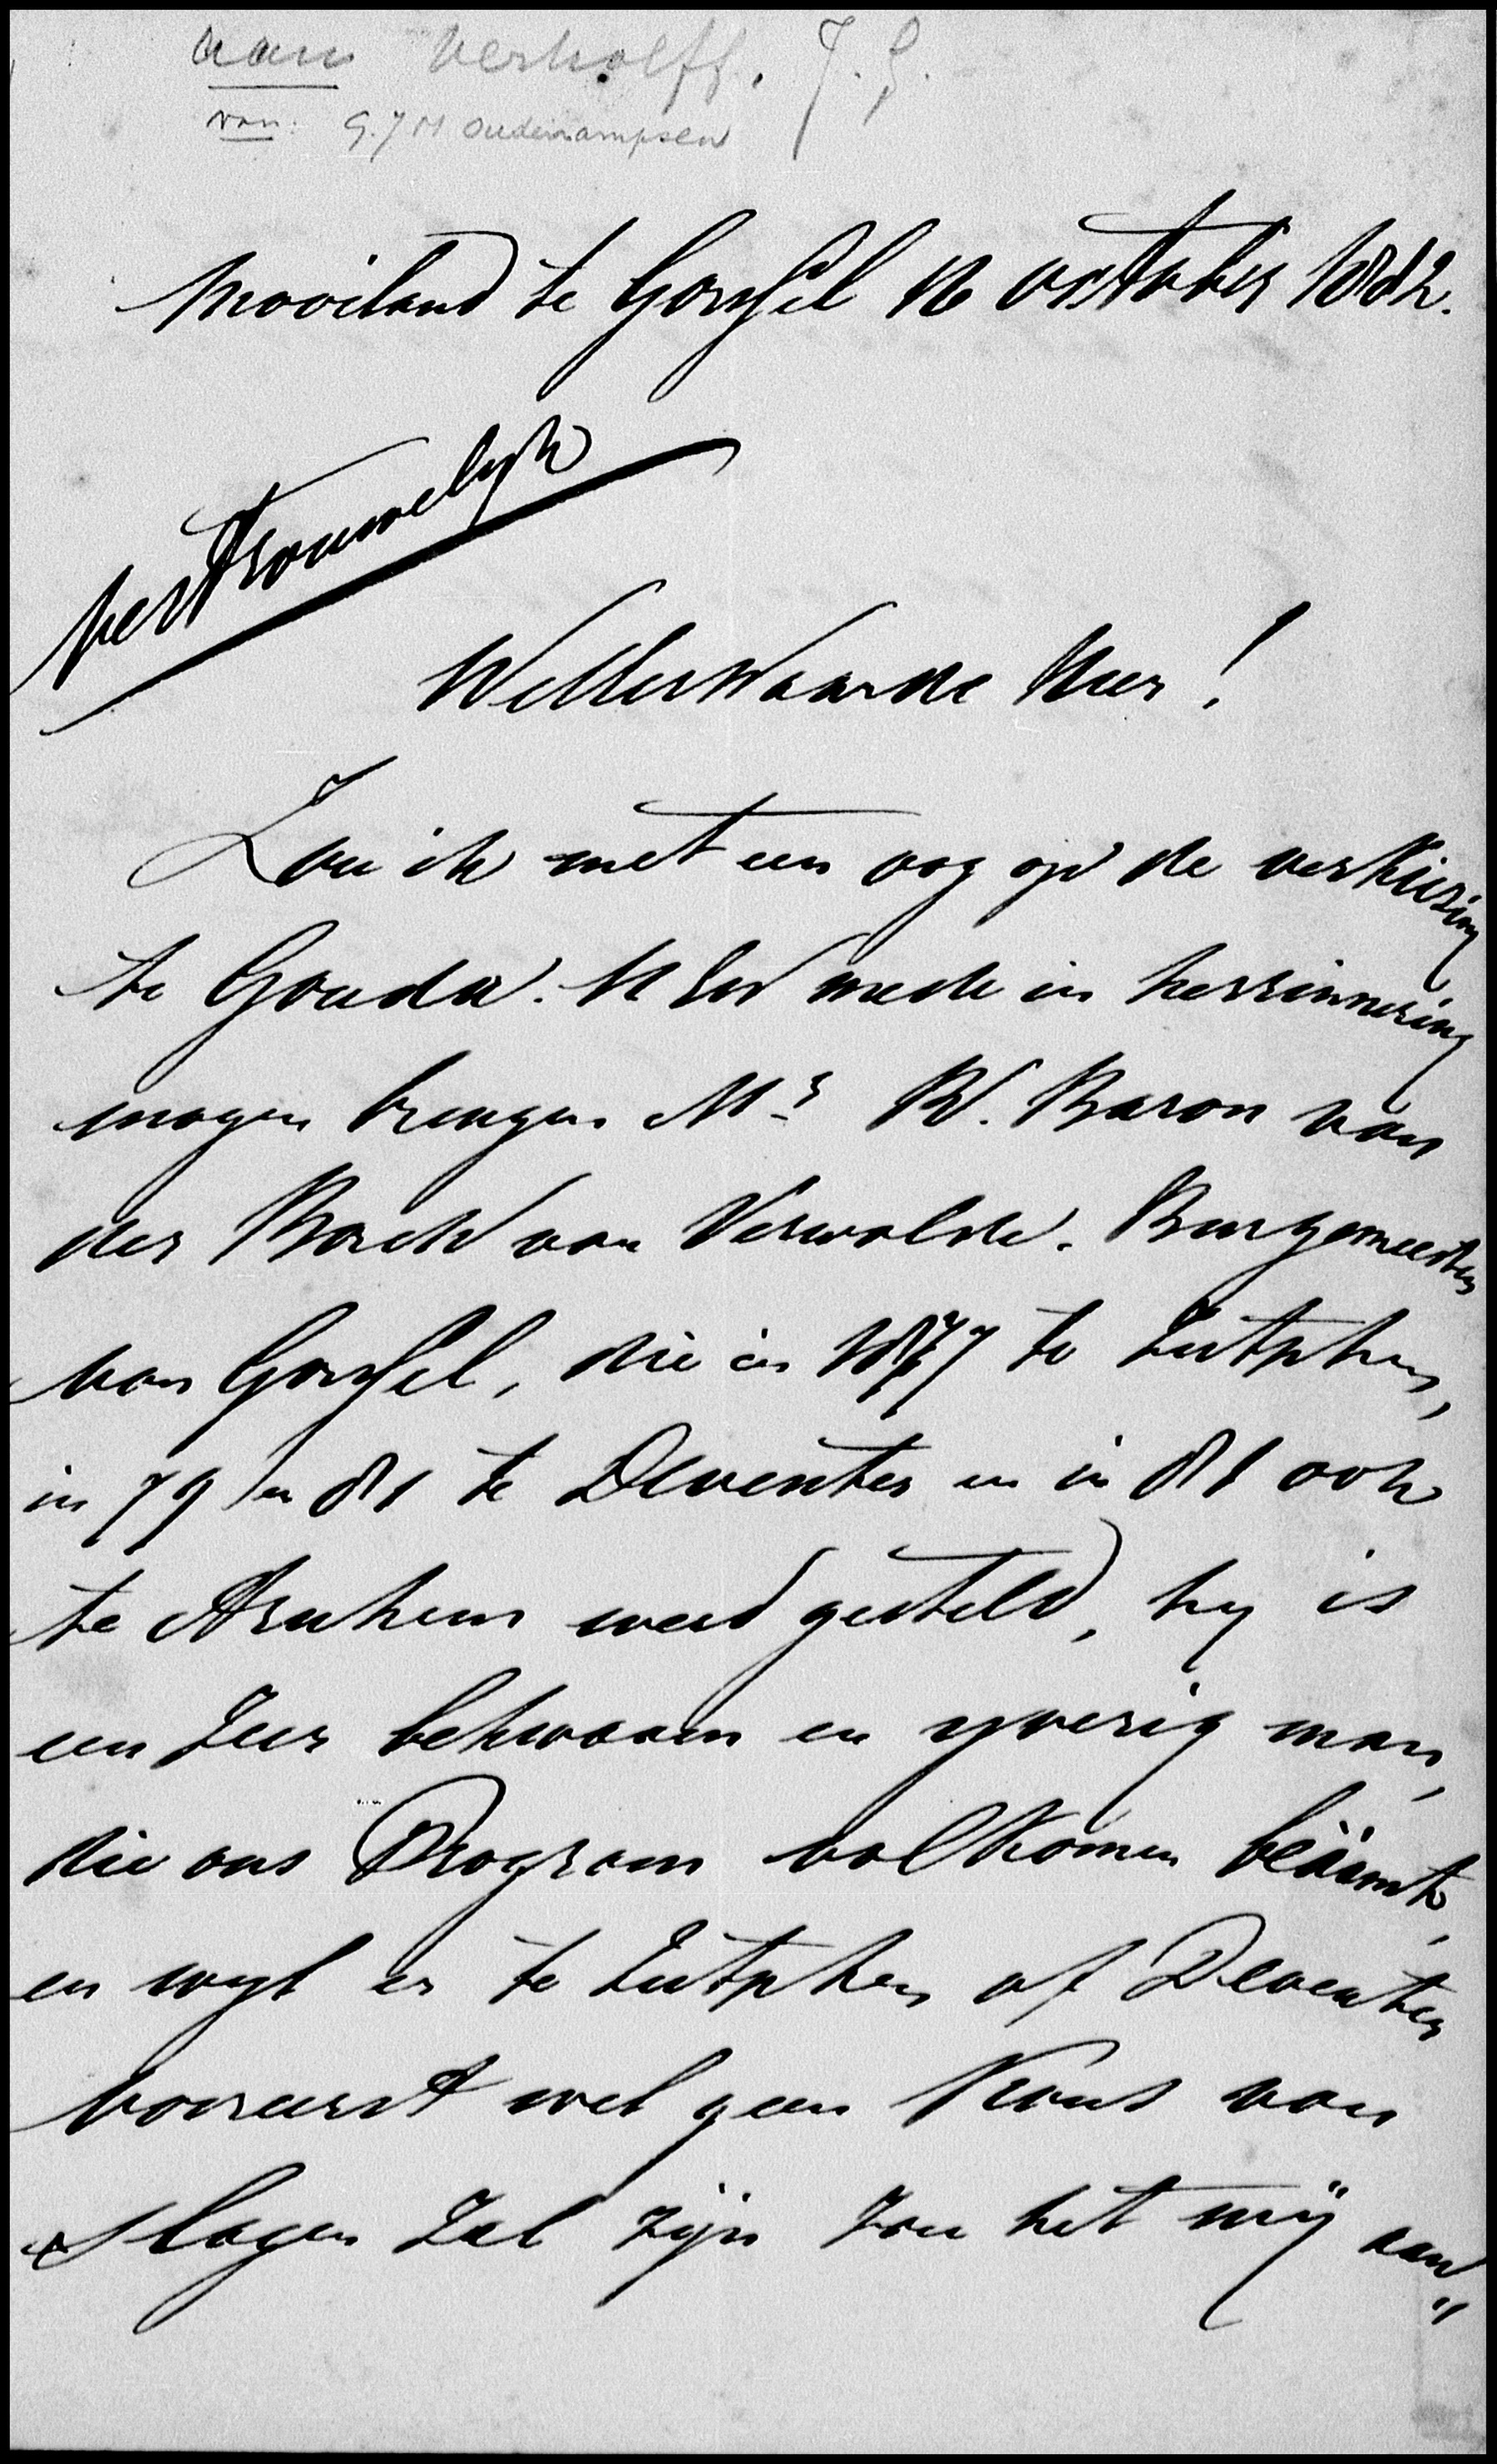 aan Verhoeff. J. G.
van: G. J M Oudenampsen
Mooiland te Gorssel 16 october 1882.
Vertrouwelyk
WelEerWaarde Heer!
Zou ik met een oog op de verkiezing
te Gouda. UEw mede in herinnering
mogen brengen Mr W. Baron van
der Borch van Verwolde. Burgemeester
van Gorssel, die in 1877 te Zutphen,
in 79 en 81 te Deventer en in 81 ook
te Arnhem werd gesteld, hy is
een zeer bekwaam en yverig man,
die ons Program volkomen beaamt,
en wyl er te Zutphen of Deventer
vooreerst wel geen Kans van
slagen zal zijn zou het mij aan"